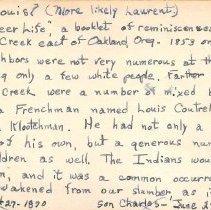 ouis? (More likely Laurent)
eer Life", a booklet of reminiscences
Creek east of Oakland, Oreg. - 1853 on
hbors were not very numerous at th
g only a few white people. Farther
Creek were a number of mixed
a Frenchman named Louis Coutre
Klootchman. He had not only a
of his own, but a generous num
ldren as well. The Indians wou
n, and it was a common occurre
wakened from our slumber as i
27-1890 Son Charles - June 2